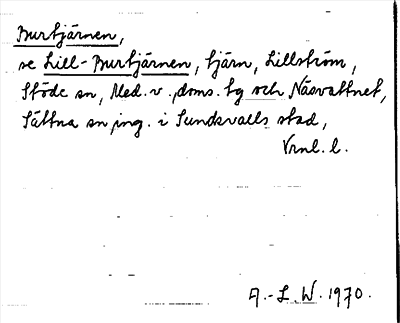 Burtjärnen,
se Lill-Burtjärnen, tjärn, Lillström,
Stöde sn, Med. v. doms. tg och Näsvattnet,
Sättna sn ing. i Sundsvalls stad,
Vrnl. l.
A.-L. W. 1970.